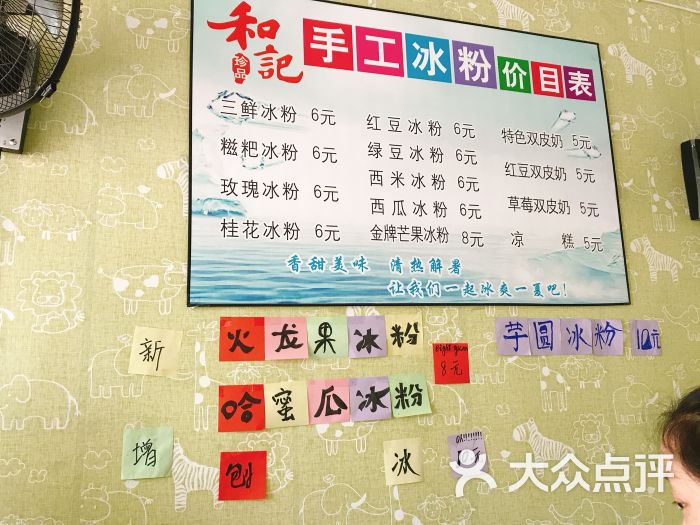 和記
珍品
手工冰粉价目表
三鲜冰粉 6元
糍粑冰粉 6元
玫瑰冰粉 6元
桂花冰粉 6元
红豆冰粉 6元
绿豆冰粉 6元
西米冰粉 6元
西瓜冰粉 6元
金牌芒果冰粉 8元
特色双皮奶 5元
红豆双皮奶 5元
草莓双皮奶 5元
凉 糕 5元
香甜美味 清热解暑
让我们一起冰爽一夏吧!
新
增
火龙果冰粉
哈蜜瓜冰粉
8元
刨
冰
芋圆冰粉 10元
大众点评